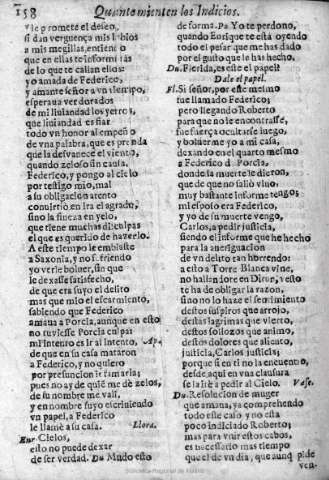 158 Quanto mienten los Indicios.
le promete el deseo,
si dan verguença mis labios
a mis megillas, entiendo
que en ellas te informè mas
de lo que te callan ellos:
yo amada de Federico,
y amante señor a vn tiempo,
esperaua ver dorados
de mi liuiandad los yerros,
que liuiandad es fiar
todo vn honor al empeño
de vna palabra, que es prenda
que la desvanece el viento,
quando zeloso sin causa,
Federico, y pongo al cielo
por testigo mio, mal
a su obligacion atento
conuirtiò en ira el agrado,
sino la fineza en yelo,
que tiene muchas disculpas
el que es querido de hazerlo.
A este tiempo le embiaste
a Saxonia, y no sufriendo
yo verle boluer, sin que
le dexasse satisfecho,
de que era suyo el delito
mas que mio el escarmiento,
sabiendo que Federico
amaua a Porcia, aunque en esto
no tuuiesse Porcia culpa;
mi intento es ir al intento, Apa.
que en su casa mataron
a Federico, y no quiero
por presuncion infamarla;
pues no ay de quiẽ me dè zelos,
de su nombre me valì,
y en nombre suyo escriuiendo
vn papel, a Federico
le llamè a su casa. Llora.
Enr. Cielos,
esto no puede dexar
de ser verdad. Du. Mudo esto
de forma. Pa. Yo te perdono,
quando Enrique te està oyendo
todo el pesar que me has dado
por el gusto que le has hecho.
Du. Flerida, es este el papel?
Dale el papel.
Fl. Si señor, por este mesmo
fue llamado Federico;
pero llegando Roberto
para que no le encontrasse,
fue fuerça ocultarse luego,
y boluerme yo a mi casa,
dexando en el quarto mesmo
a Federico de Porcia,
donde la muerte le dieron,
que de que no saliò viuo,
muy bastante informe tengo;
mi esposo era Federico,
y yo de su muerte vengo,
Carlos, a pedir justicia,
siendo el informe que he hecho
para la aueriguacion
de vn delito tan horrendo:
a esto a Torre Blanca vine,
no hallandote en Dixon, y esto
te ha de obligar la razon,
sino no lo haze el sentimiento
destos suspiros que arrojo,
destas lagrimas que vierto,
destos sollozos que animo,
destos dolores que aliento,
justicia, Carlos justicia;
porque si en ti no la encuentro,
desde aqui en vna clausura
se la irè a pedir al Cielo. Vase.
Du. Resolucion de muger
que amaua, ya comprehendo
todo este caso y no esta
poco indiciado Roberto;
mas para vnir estos cabos,
es necessario mas tiempo
que el de vn dia, que aunq̃ pide
ven-
Biblioteca Regional de Madrid